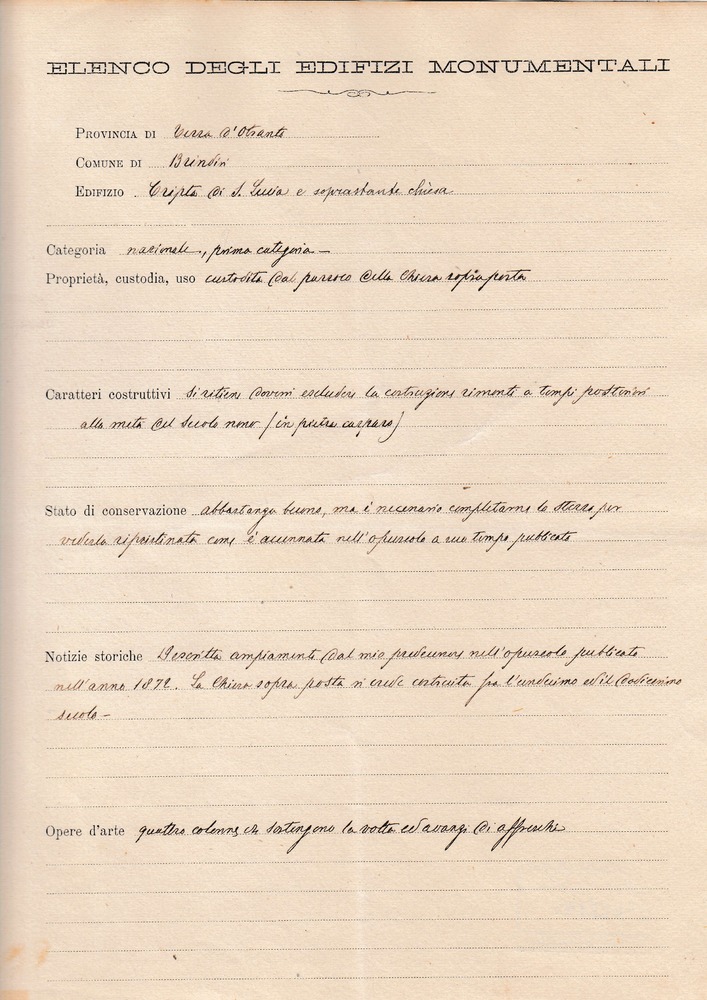 ELENCO DEGLI EDIFIZI MONUMENTALI
PROVINCIA DI Terra d'Otranto
COMUNE DI Brindisi
EDIFIZIO Cripta di S. Lucia e soprastante chiesa
Categoria nazionale, prima categoria —
Proprietà, custodia, uso custodita dal parroco della Chiesa sopra posta
Caratteri costruttivi si ritiene doversi escludere la costruzione rimonti a tempi posteriori
alla metà del secolo nono (in pietra carparo)
Stato di conservazione abbastanza buono, ma è necessario completarne lo sterro per
vederla ripristinata come è accennata nell'opuscolo a suo tempo pubblicato
Notizie storiche Descritta ampiamente dal mio predecessore nell'opuscolo pubblicato
nell'anno 1872. La Chiesa sopra posta si crede costruita fra l'undecimo ed il dodicesimo
secolo —
Opere d'arte quattro colonne che sostengono la volta ed avanzi di affreschi